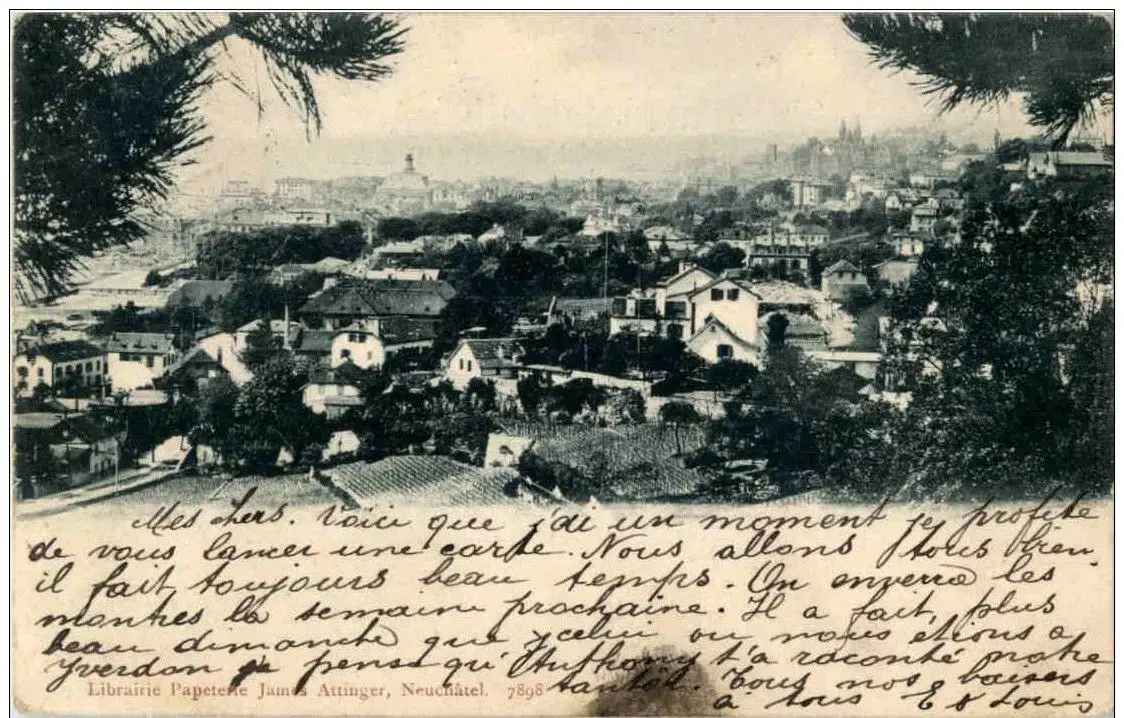 Mes chers. Voici que j'ai un moment je profite
de vous lancer une carte. Nous allons tous bien
il fait toujours beau temps. On enverra les
montres la semaine prochaine. Il a fait, plus
beau dimanche que celui ou nous étions a
Yverdon je pense qu'Anthony t'a raconté notre
tantot. Tous nos baisers
a tous E & Louis
Librairie Papeterie James Attinger, Neuchâtel. 7898